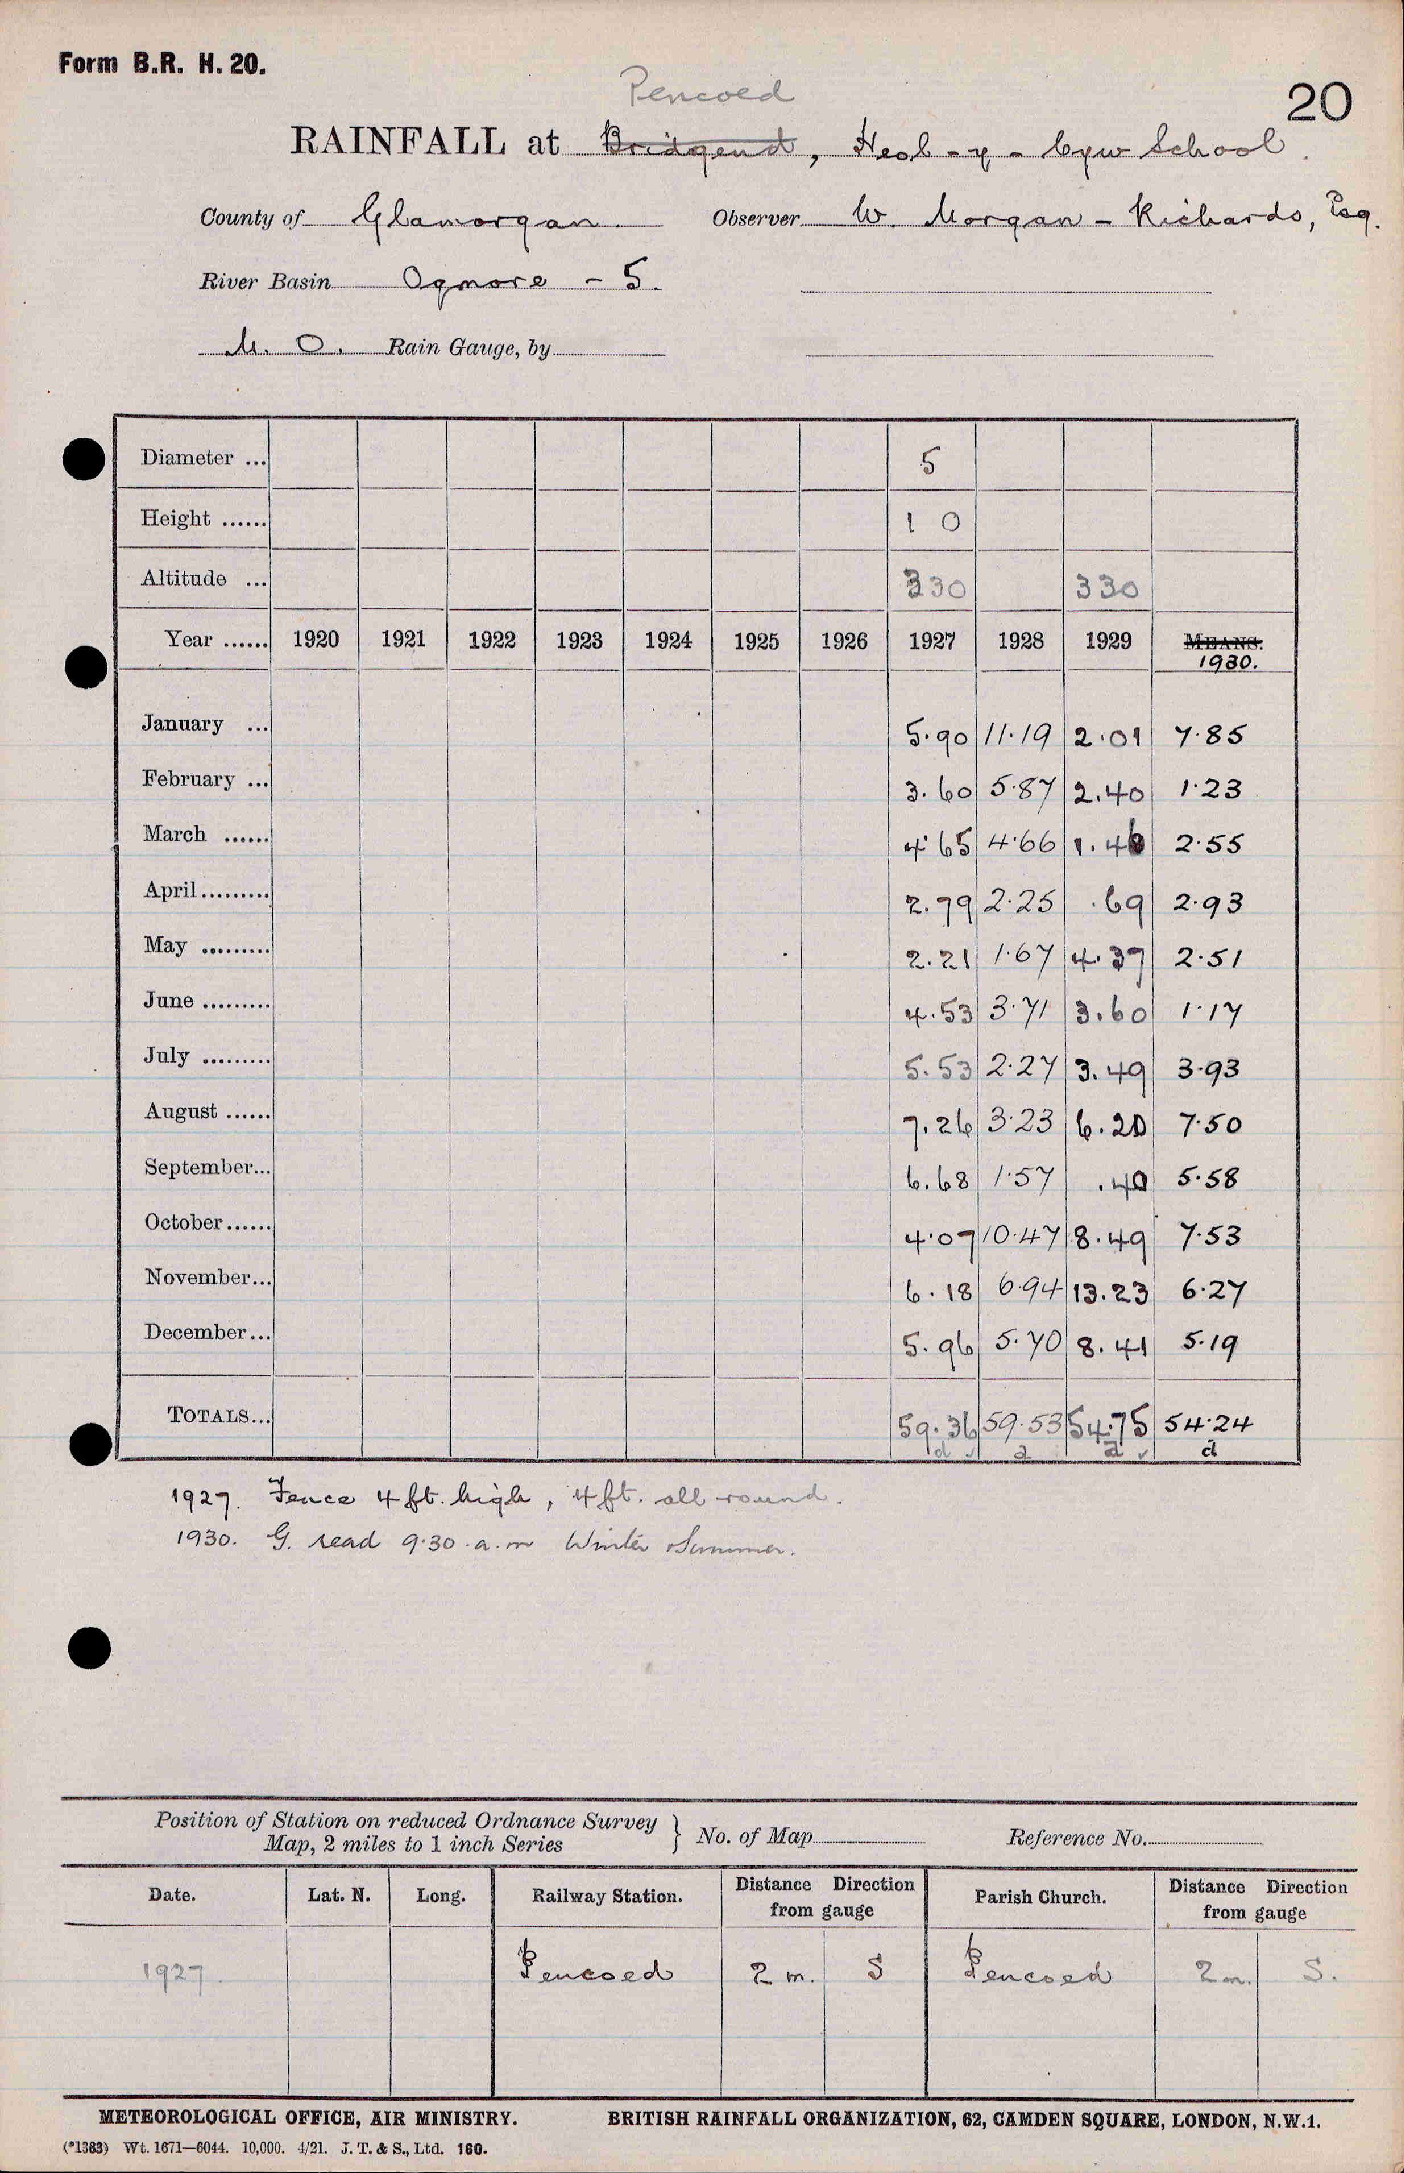 Form B.R. H. 20.
20
Pencoed
RAINFALL at Bridgend, Heol-y-Cyw School.
County of Glamorgan. Observer W. Morgan-Richards, Esq.
River Basin Ogmore - 5.
M. O. Rain Gauge, by
Diameter ... 5
Height ...... 1 0
Altitude ... 330 330
Year ...... 1920 1921 1922 1923 1924 1925 1926 1927 1928 1929 MEANS.
1930.
January ... 5.90 11.19 2.01 7.85
February ... 3.60 5.87 2.40 1.23
March ...... 4.65 4.66 1.46 2.55
April ......... 2.79 2.25 .69 2.93
May ......... 2.21 1.67 4.37 2.51
June ......... 4.53 3.71 3.60 1.17
July ......... 5.53 2.27 3.49 3.93
August ...... 7.26 3.23 6.20 7.50
September... 6.68 1.57 .40 5.58
October...... 4.07 10.47 8.49 7.53
November... 6.18 6.94 13.23 6.27
December... 5.96 5.70 8.41 5.19
TOTALS... 59.36 59.53 54.75 54.24
d ✓ a a ✓ d
1927. Fence 4 ft. high, 4 ft. all round.
1930. G. read 9.30 a.m Winter Summer.
Position of Station on reduced Ordnance Survey
Map, 2 miles to 1 inch Series } No. of Map Reference No.
Date. Lat. N. Long. Railway Station. Distance Direction from gauge Parish Church. Distance Direction from gauge
1927. Pencoed 2 m. S Pencoed 2 m. S.
METEOROLOGICAL OFFICE, AIR MINISTRY. BRITISH RAINFALL ORGANIZATION, 62, CAMDEN SQUARE, LONDON, N.W.1.
(*1383) Wt. 1671—6044. 10,000. 4/21. J. T. & S., Ltd. 160.